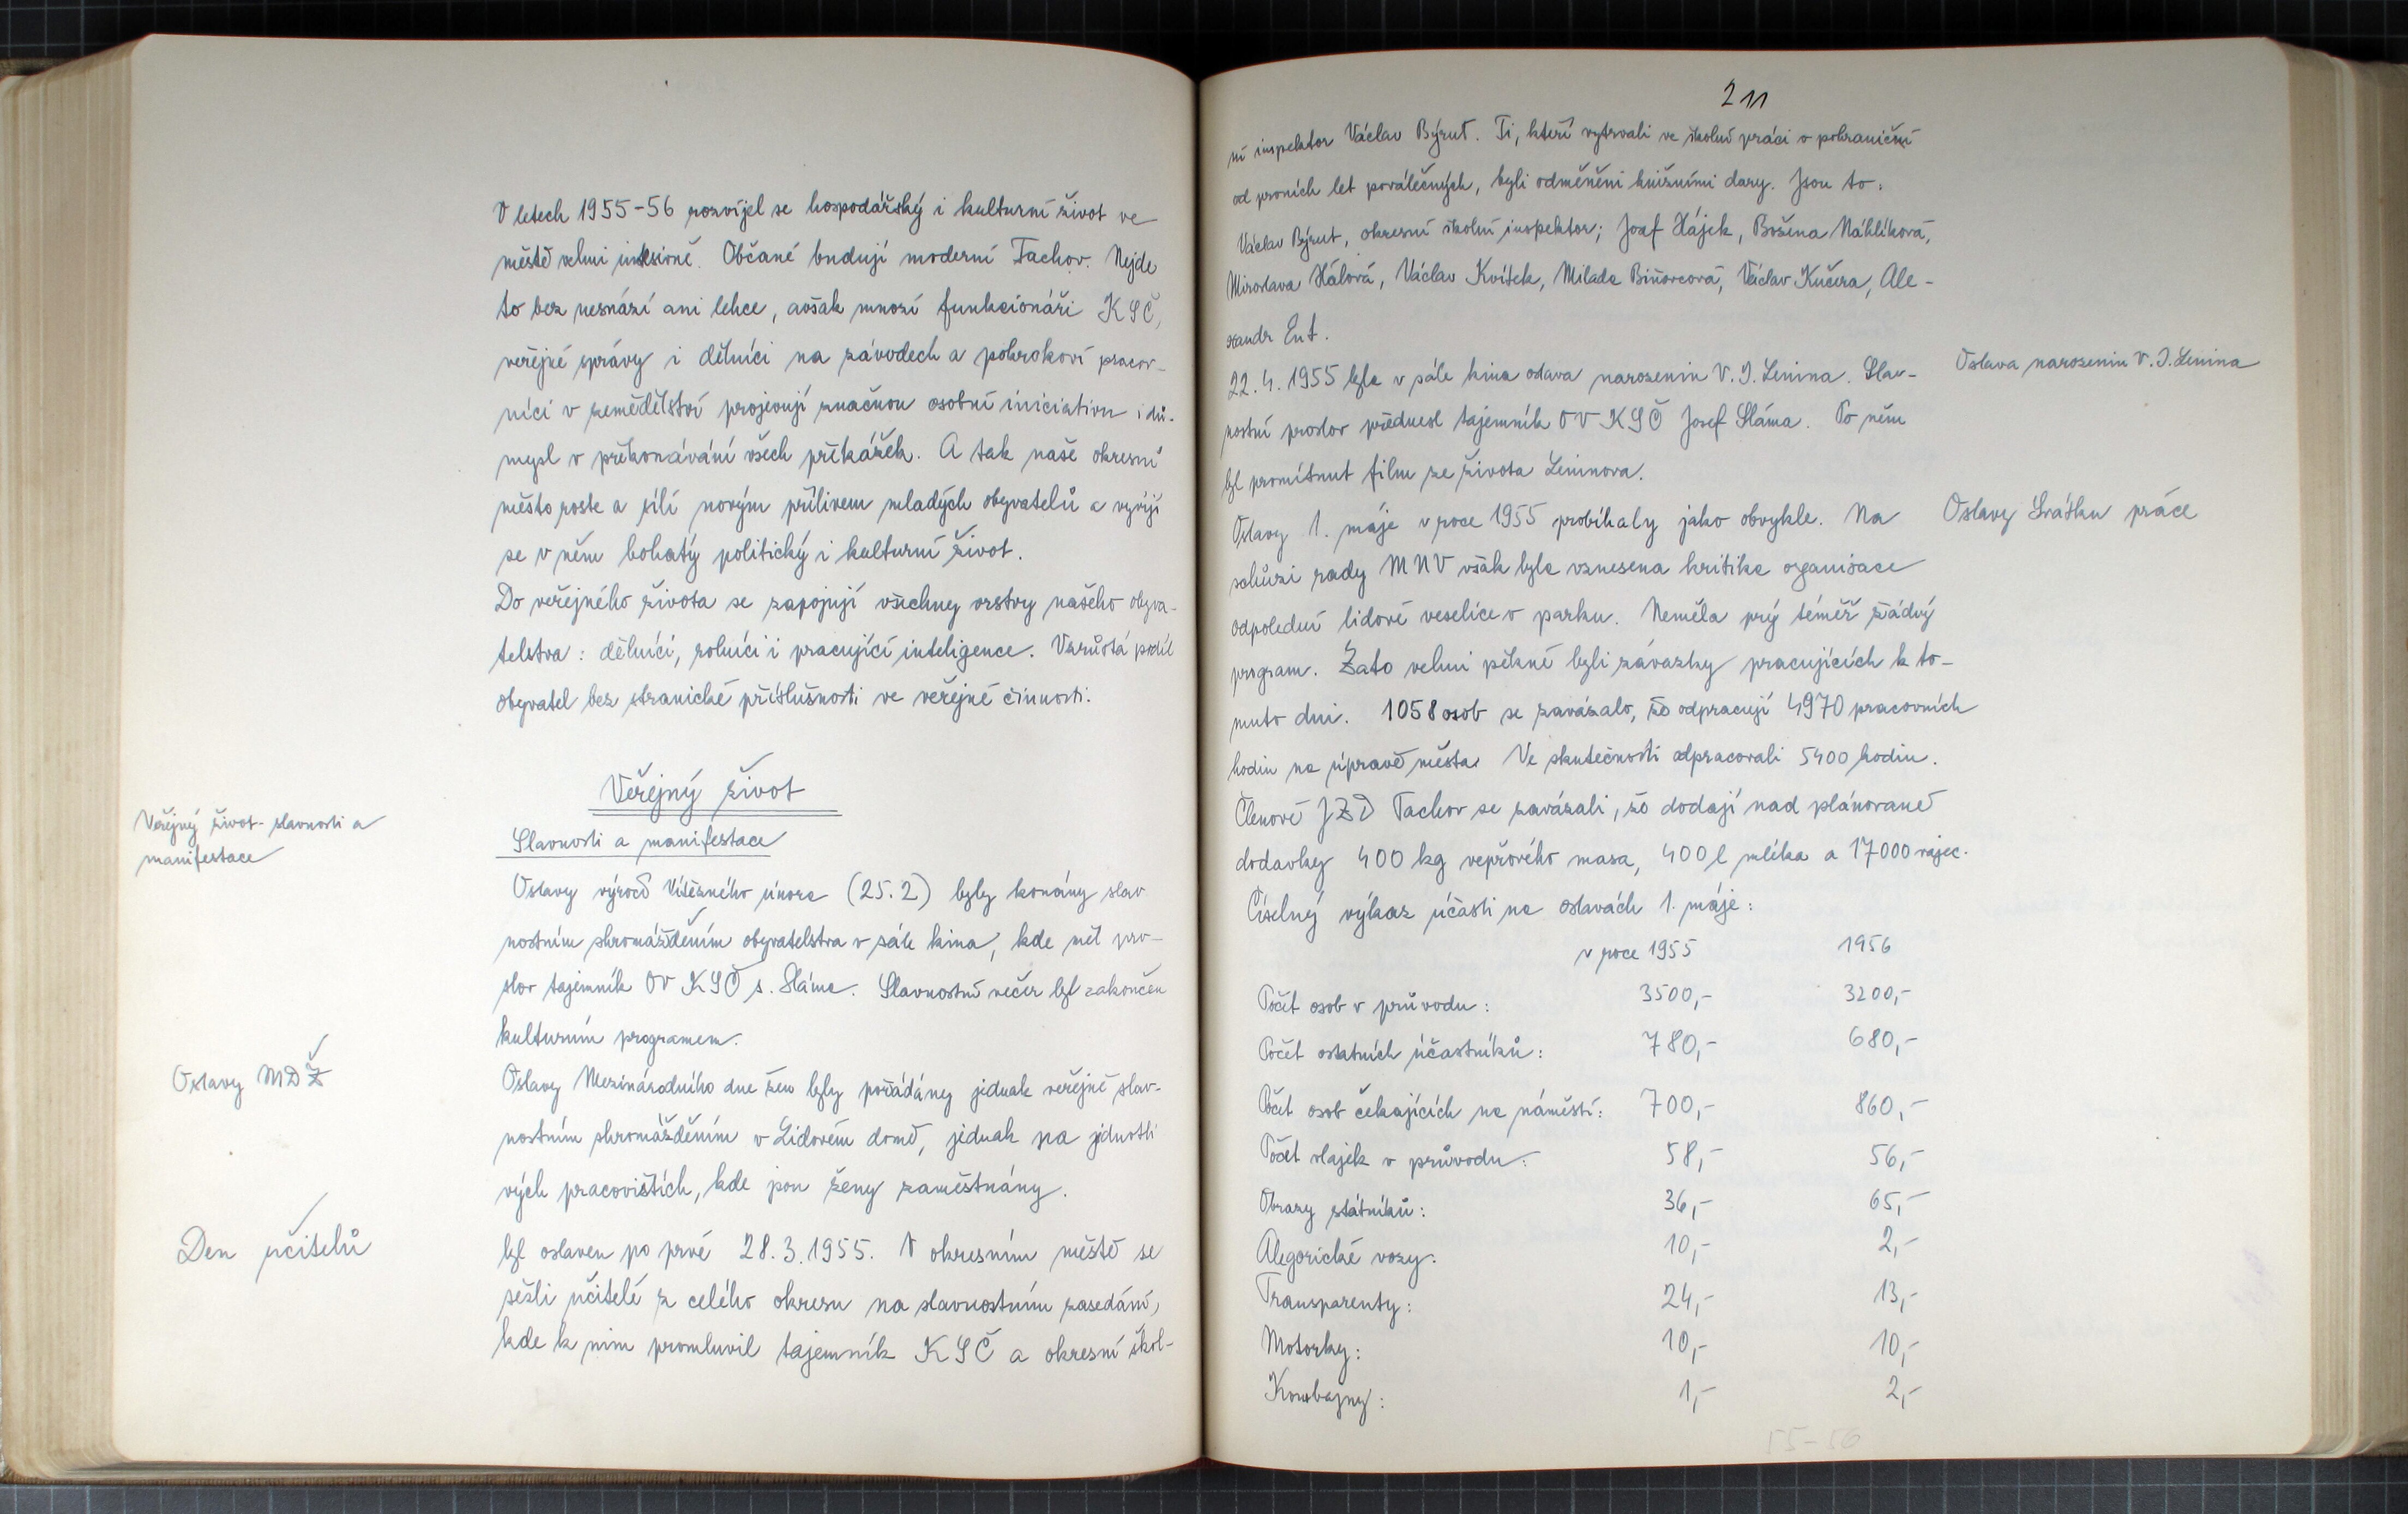 V letech 1955-56 rozvíjel se hospodářský i kulturní život ve
městě velmi intesivně. Občané budují moderní Tachov. Nejde
to bez nesnází ani lehce, avšak mnozí funkcionáři KSČ,
veřejné správy i dělníci na závodech a pokrokoví pracov-
níci v zemědělství projevují značnou osobní iniciativu i dů-
mysl v překonávání všech překážek. A tak naše okresní
město roste a sílí novým přílivem mladých obyvatelů a vyvíjí
se v něm bohatý politický i kulturní život.
Do veřejného života se zapojují všechny vrstvy našeho obyva-
telstva: dělníci, rolníci i pracující inteligence. Vzrůstá podíl
obyvatel bez stranické příslušnosti ve veřejné činnosti.
Veřejný život
Veřejný život - slavnosti a
manifestace
Slavnosti a manifestace
Oslavy výročí Vítězného února (25.2) byly konány slav
nostním shromážděním obyvatelstva v sále kina, kde měl pro-
slov tajemník OV KSČ s. Sláma. Slavnostní večer byl zakončen
kulturním programem.
Oslavy MDŽ
Oslavy Mezinárodního dne žen byly pořádány jednak veřejně slav-
nostním shromážděním v Lidovém domě, jednak na jednotli
vých pracovištích, kde jsou ženy zaměstnány.
Den učitelů
byl oslaven po prvé 28.3.1955. V okresním městě se
sešli učitelé z celého okresu na slavnostním zasedání,
kde k nim promluvil tajemník KSČ a okresní škol-
211
ní inspektor Václav Býrut. Ti, kteří vytrvali ve školní práci v pohraničí
od prvních let poválečných, byli odměněni knižními dary. Jsou to:
Václav Býrut, okresní školní inspektor; Josef Hájek, Božena Náhlíková,
Miroslava Hálová, Václav Kvítek, Milada Václav Kučera, Ale-
xandr Ent.
22.4.1955 byla v sále kina oslava narozenin V. I. Lenina. Slav-
Oslava narozenin V. I. Lenina
nostní proslov přednesl tajemník OV KSČ Josef Sláma. Po něm
byl promítnut film ze života Leninova.
Oslavy 1. máje v roce 1955 probíhaly jako obvykle. Na
Oslavy Svátku práce
schůzi rady MNV však byla vznesena kritika organisace
odpolední lidové veselice v parku. Neměla prý téměř žádný
program. Zato velmi pěkné byli závazky pracujících k to-
muto dni. 1058 osob se zavázalo, že odpracují 4970 pracovních
hodin na úpravě města. Ve skutečnosti odpracovali 5400 hodin.
Členové JZD Tachov se zavázali, že dodají nad plánované
dodavky 400 kg vepřového masa, 400 l mléka a 17000 vajec.
Číselný výkaz účasti na oslavách 1. máje:
v roce 1955 1956
Počet osob v průvodu: 3500,- 3200,-
Počet ostatních účastníků: 780,- 680,-
Počet osob čekajících na náměstí: 700,- 860,-
Počet vlajek v průvodu: 58,- 56,-
Obrazy státníků: 36,- 65,-
Alegorické vozy: 10,- 2,-
Transparenty: 24,- 13,-
Motorky: 10,- 10,-
Kombajny: 1,- 2,-
55-56